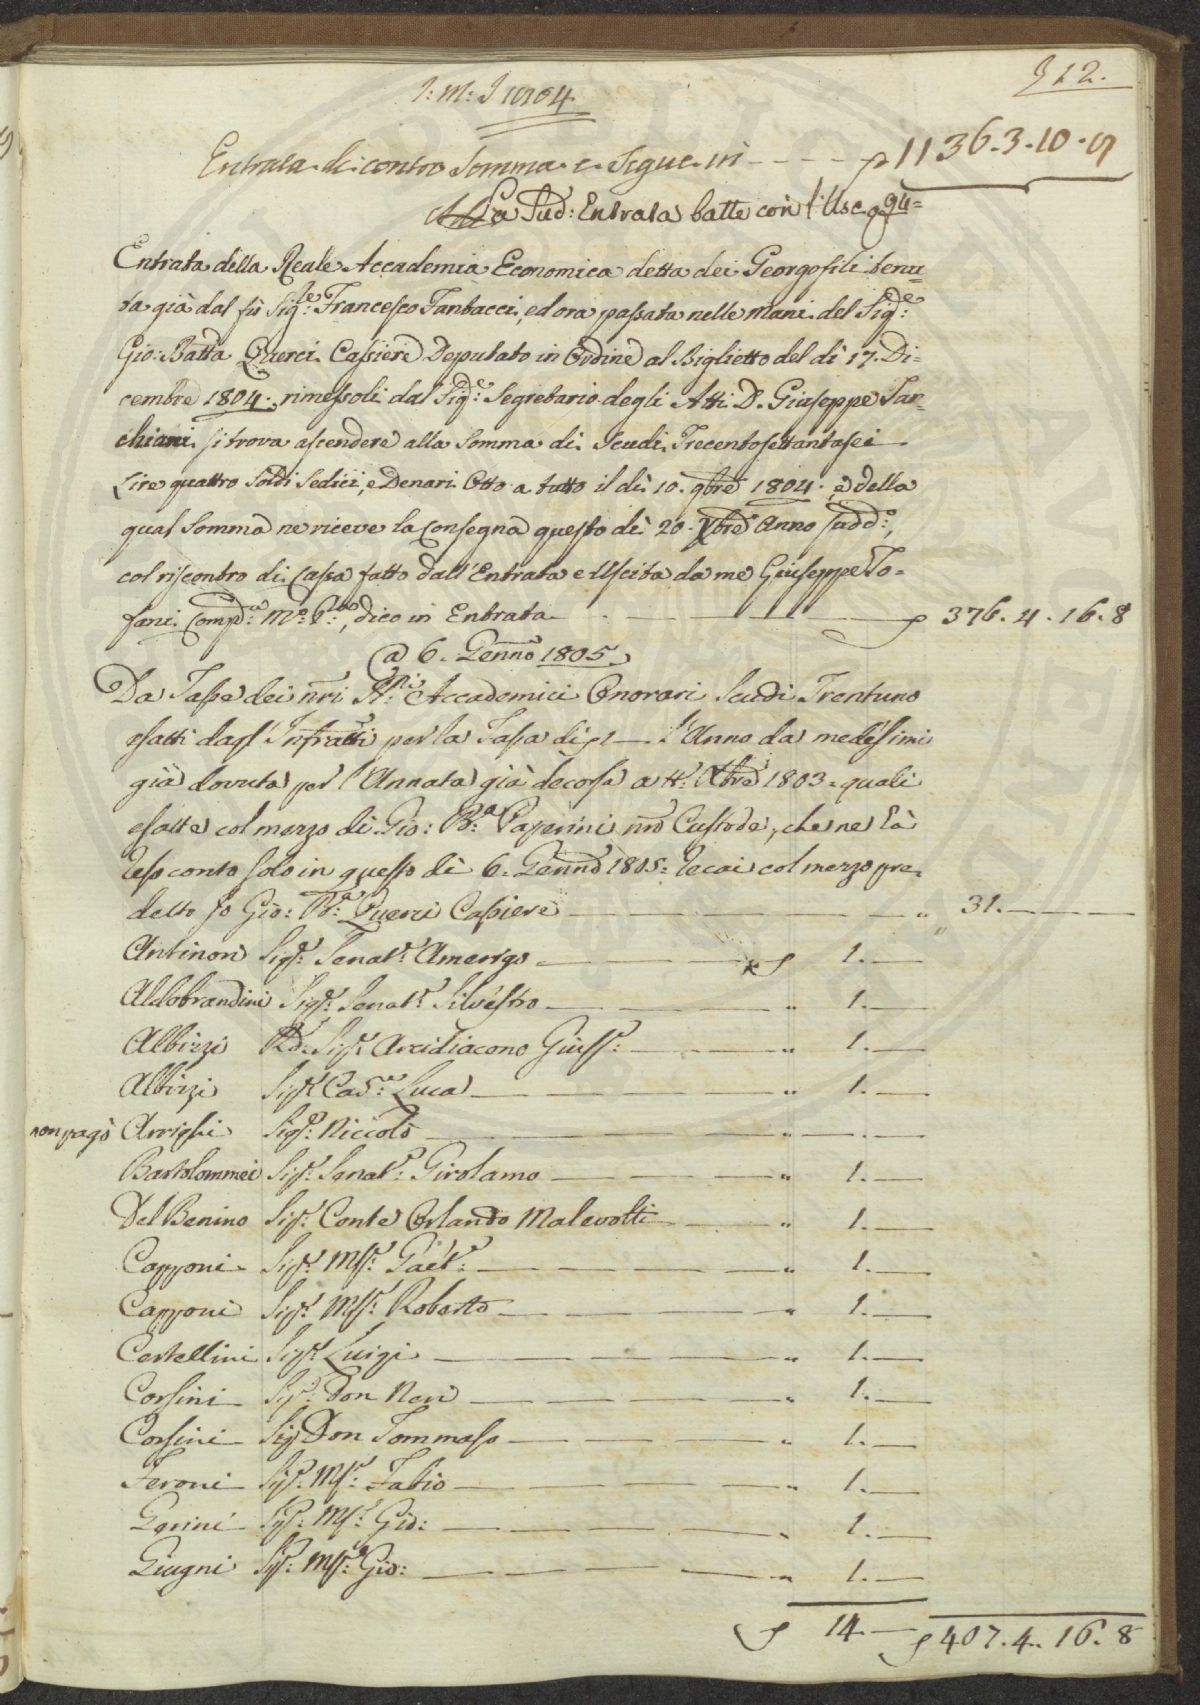 12.
J: M: J 1804
Entrata di contro Somma e Segue in - - - - 1136.3.10.9
La Sud: Entrata batte con l'Usc.
Entrata della Reale Accademia Economica detta dei Georgofili tenu
ta già dal fù Sig.re Francesco Tantacci, ed ora passata nelle mani del Sig.re
Gio: Batta Querci Cassiere Deputato in Ordine al Biglietto del dì 17. Di=
cembre 1804., rimessoli dal Sig.re Segretario degli Atti D. Giuseppe Sar=
chiani si trova ascendere alla Somma di Scudi Trecentosettantasei
Lire quattro Soldi Sedici, e Denari Otto a tutto il dì 10. 9bre 1804., e della
qual Somma ne riceve la Consegna questo dì 20. Xbre Anno sudd.o,
col riscontro di Cassa fatto dall'Entrata e Uscita da me Giuseppe To=
fani Comp.ta , dico in Entrata 376.4.16.8
a 6. Genno 1805.
Da Tasse dei nri Accademici Onorari Scudi Trentuno
esatti dagl' Infratti per la Tassa di 1 — l'Anno da medesimi
già dovuta per l'Annata già decorsa a tt.o 1803. quali
esatte col mezzo di Gio: B.a Paperini nro Custode, che ne hà
reso conto solo in questo dì 6. Genno 1805. recai col mezzo pre=
detto Io Gio: B.a Querci Cassiere — " 31. —
Antinori Sig.r Senat.r Amerigo — * 1. —
Aldobrandini Sig.r Senat.r Silvestro — " 1. —
Albizzi Sig.r Arcidiacono Gius.e — " 1. —
Albizzi Sig.r Cav.re Luca — " 1. —
non pagò Arrighi Sig.r Niccolò — " —
Bartolommei Sig.r Senat.r Girolamo — " 1. —
Del Benino Sig.r Conte Orlando Malevolti — " 1. —
Capponi Sig.r Mse. Gaet.o — " 1. —
Capponi Sig.r Mse. Roberto — " 1. —
Certellini Sig.r Luigi — " 1. —
Corsini Sig.r Don Neri — " 1. —
Corsini Sig Don Tommaso — " 1. —
Feroni Sig.r Mse. Fabio — " 1. —
Gerini Sig.r Mse. Gio: — " 1. —
Giugni Sig.r Mse. Gio: — " 1. —
14. — 407.4.16.8